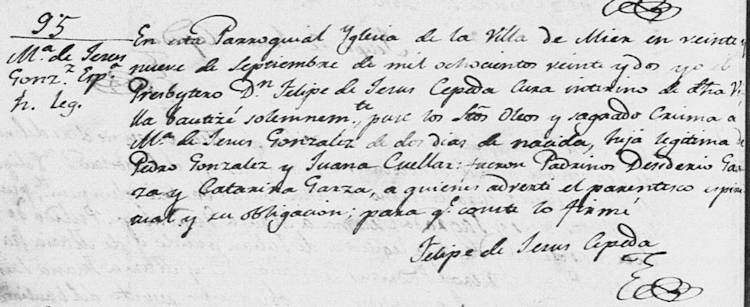 95
Ma. de Jesus
Gonz.z Esp.a
h. leg.
En esta Parroquial Yglecia de la Villa de Mier en veinte y
nueve de Septiembre de mil ochocientos veinte y dos yo el
Presbytero Dn. Felipe de Jesus Cepeda Cura interino de dha Vi
lla bautizé solemnem.te puse los Stos Oleos y sagrado Crisma a
Ma. de Jesus Gonzalez de dos dias de nacida, hija legitima de
Pedro Gonzalez y Juana Cuellar: fueron Padrinos Desiderio Gar
za y Catarina Garza, a quienes adverti el parentesco espiri
tual y su obligacion; para q.e conste lo firmé
Felipe de Jesus Cepeda